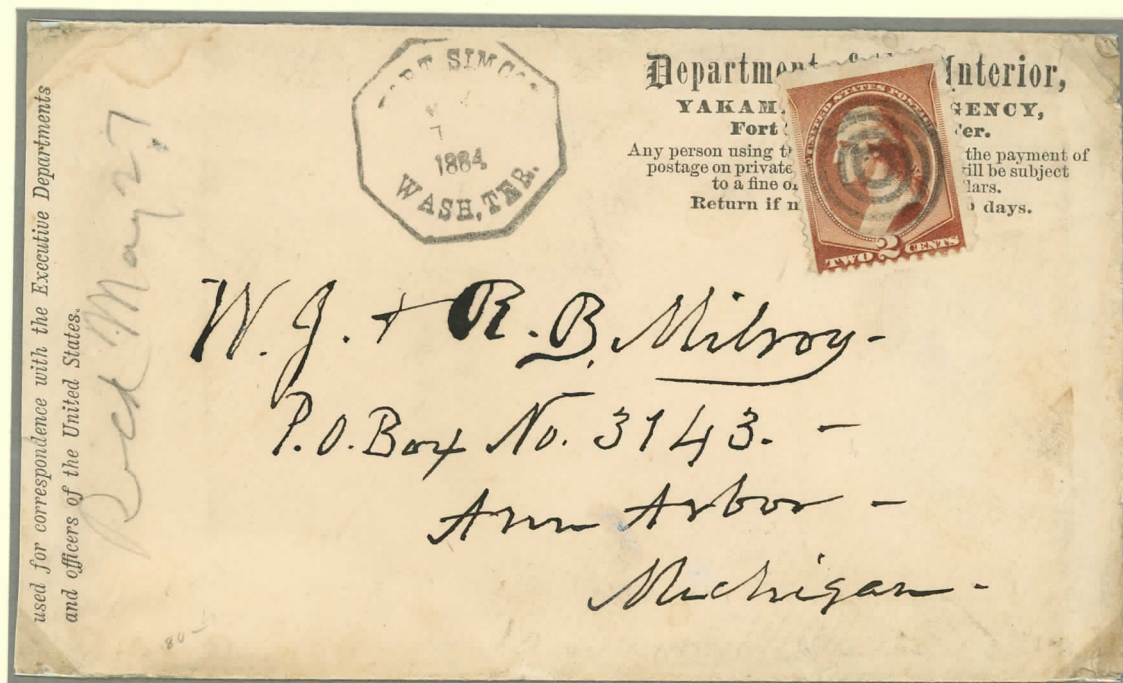 used for correspondence with the Executive Departments
and officers of the United States.
Recd May 27
SIMCO
1884
WASH, TER.
Department Interior,
YAKAM GENCY,
Fort er.
Any person using the payment of
postage on private ill be subject
to a fine o lars.
Return if n days.
UNITED STATES POSTAGE
TWO 2 CENTS
W. J. + R. B. Milroy-
P.O. Box No. 3143. -
Ann Arbor -
Michigan -
80-